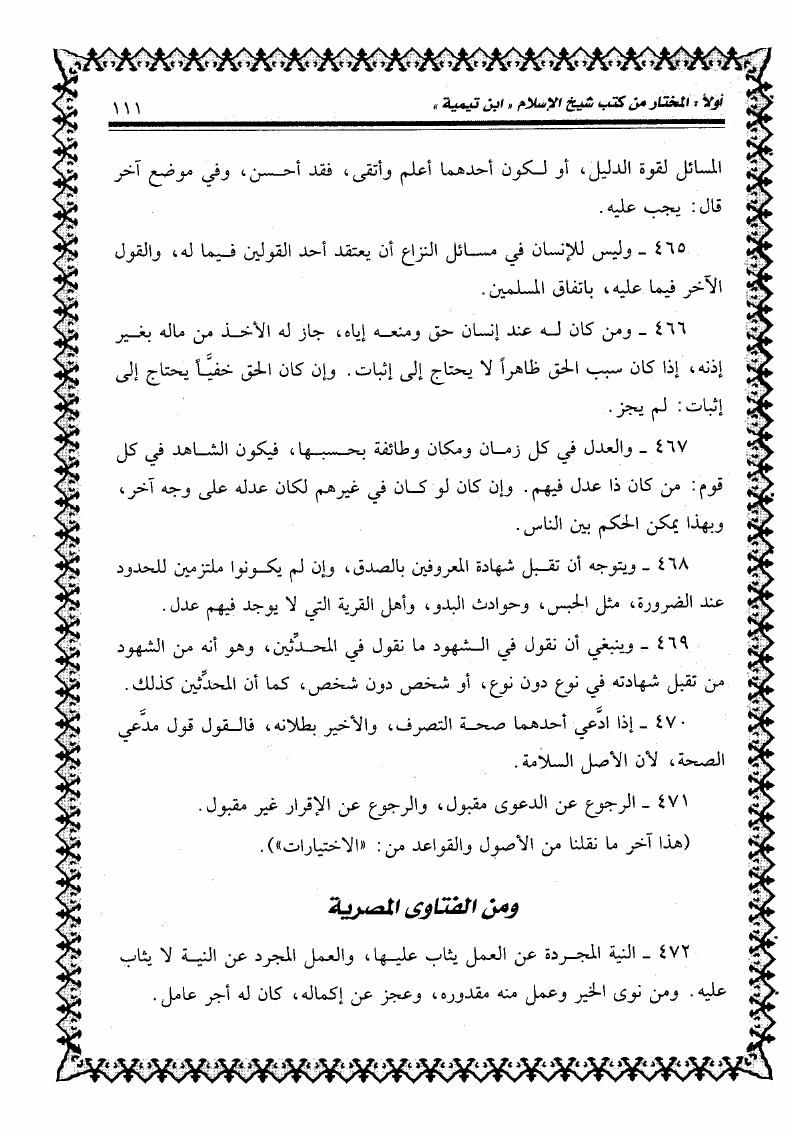 أولاً : المختار من كتب شيخ الإسلام « ابن تيمية » ١١١
المسائل لقوة الدليل، أو لكون أحدهما أعلم وأتقى، فقد أحسن، وفي موضع آخر
قال: يجب عليه.
٤٦٥ - وليس للإنسان في مسائل النزاع أن يعتقد أحد القولين فيما له، والقول
الآخر فيما عليه، باتفاق المسلمين.
٤٦٦ - ومن كان له عند إنسان حق ومنعه إياه، جاز له الأخذ من ماله بغير
إذنه، إذا كان سبب الحق ظاهراً لا يحتاج إلى إثبات. وإن كان الحق خفيَّاً يحتاج إلى
إثبات: لم يجز.
٤٦٧ - والعدل في كل زمان ومكان وطائفة بحسبها، فيكون الشاهد في كل
قوم: من كان ذا عدل فيهم. وإن كان لو كان في غيرهم لكان عدله على وجه آخر،
وبهذا يمكن الحكم بين الناس.
٤٦٨ - ويتوجه أن تقبل شهادة المعروفين بالصدق، وإن لم يكونوا ملتزمين للحدود
عند الضرورة، مثل الحبس، وحوادث البدو، وأهل القرية التي لا يوجد فيهم عدل.
٤٦٩ - وينبغي أن نقول في الشهود ما نقول في المحدِّثين، وهو أنه من الشهود
من تقبل شهادته في نوع دون نوع، أو شخص دون شخص، كما أن المحدِّثين كذلك.
٤٧٠ - إذا ادَّعي أحدهما صحة التصرف، والأخير بطلانه، فالقول قول مدَّعي
الصحة، لأن الأصل السلامة.
٤٧١ - الرجوع عن الدعوى مقبول، والرجوع عن الإقرار غير مقبول.
(هذا آخر ما نقلنا من الأصول والقواعد من: «الاختيارات»).
ومن الفتاوى المصرية
٤٧٢ - النية المجردة عن العمل يثاب عليها، والعمل المجرد عن النية لا يثاب
عليه. ومن نوى الخير وعمل منه مقدوره، وعجز عن إكماله، كان له أجر عامل.